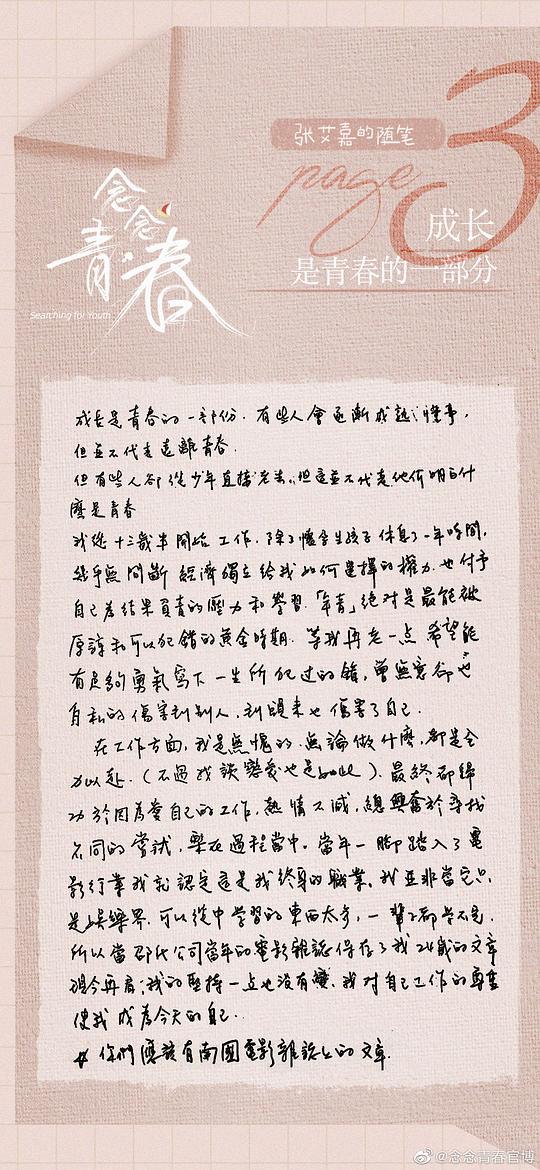 张艾嘉的随笔
page 3
成长
是青春的一部分
念念
青春
Searching for Youth
成長是青春的一部份。有些人會逐漸成熟懂事，
但並不代表遠離青春。
但有些人卻從少年直接老去，但這並不代表他們明白什
麼是青春
我從十三歲半開始工作，除了懷孕生孩子休息了一年時間，
幾乎無間斷 經濟獨立給我如何選擇的權力 也付予
自己為結果負責的壓力和學習。「年青」絕對是最能被
原諒和可以犯錯的黃金時期。等我再老一点 希望能
有足夠勇氣寫下一生所犯过的錯，曾無意卻也
自私的傷害到別人，到頭來也傷害了自己。
在工作方面，我是無愧的。無論做什麼，都是全
力以赴。（不過我談戀愛也是如此）。最終都歸
功於因為愛自己的工作，熱情不減，總興奮於尋找
不同的嘗試，樂在過程當中。當年一腳踏入了電
影行業我就認定這是我終身的職業。我並非當它只
是娛樂界，可以從中學習的東西太多，一輩子都学不完。
所以當邵氏公司當年的電影雜誌保存了我24歲的文章
現今再看；我的堅持一点也沒有變。我对自己工作的專業
使我成為今天的自己。
你們應該有南國電影雜誌上的文章
@念念青春官博